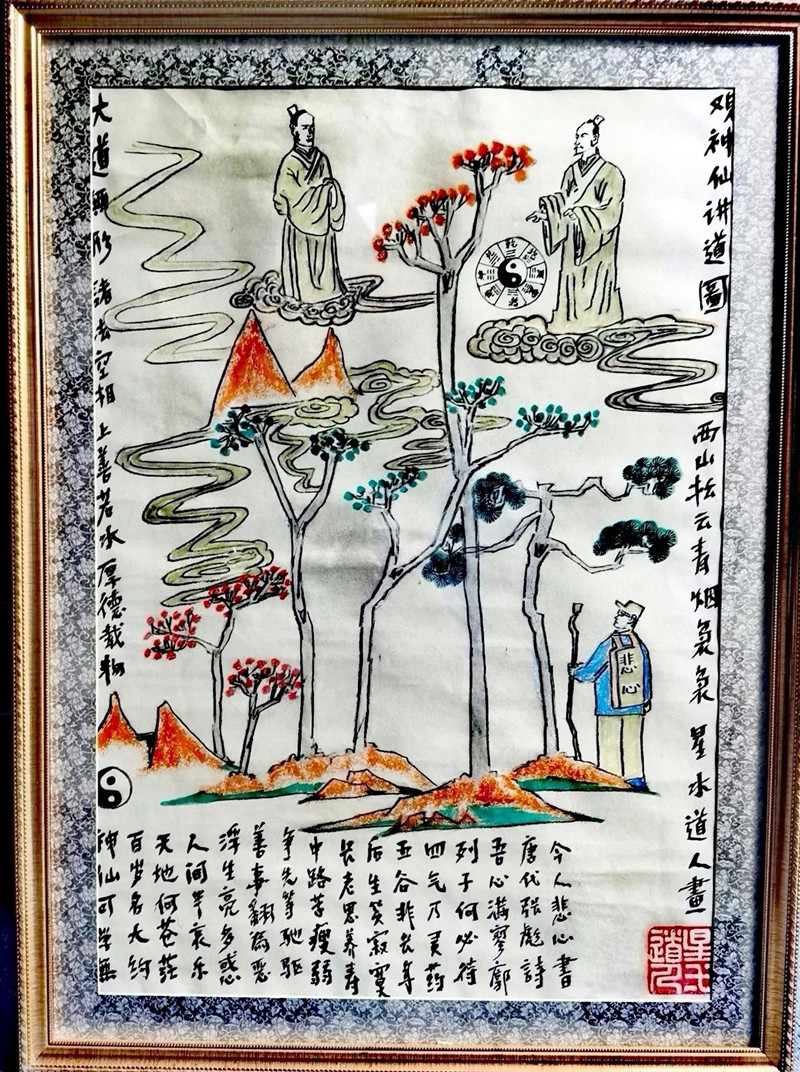 双神仙讲道圖
西山松云青烟袅袅 星水道人畫
大道無形 諸法空相 上善若水 厚德载物
悲心
神仙可学無
百岁名大约
天地何苍茫
人间半哀乐
浮生亮多惑
善事翻為恶
争先等驰驱
中路苦瘦弱
长老思养寿
后生笑寂寞
五谷非长年
四气乃灵药
列子何必待
吾心满寥廓
唐代張彪詩
今人悲心書
星水道人